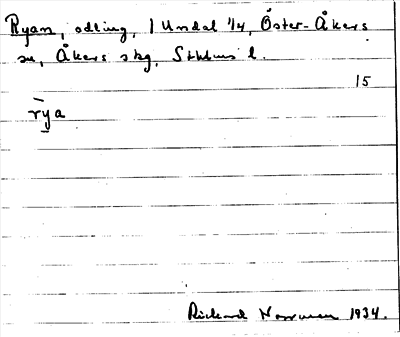 Ryan, odling, 1 Undal 1/4, Öster-Åkers
sn, Åkers skg, Sthlms l.
15
rȳa
Rickard 1934.